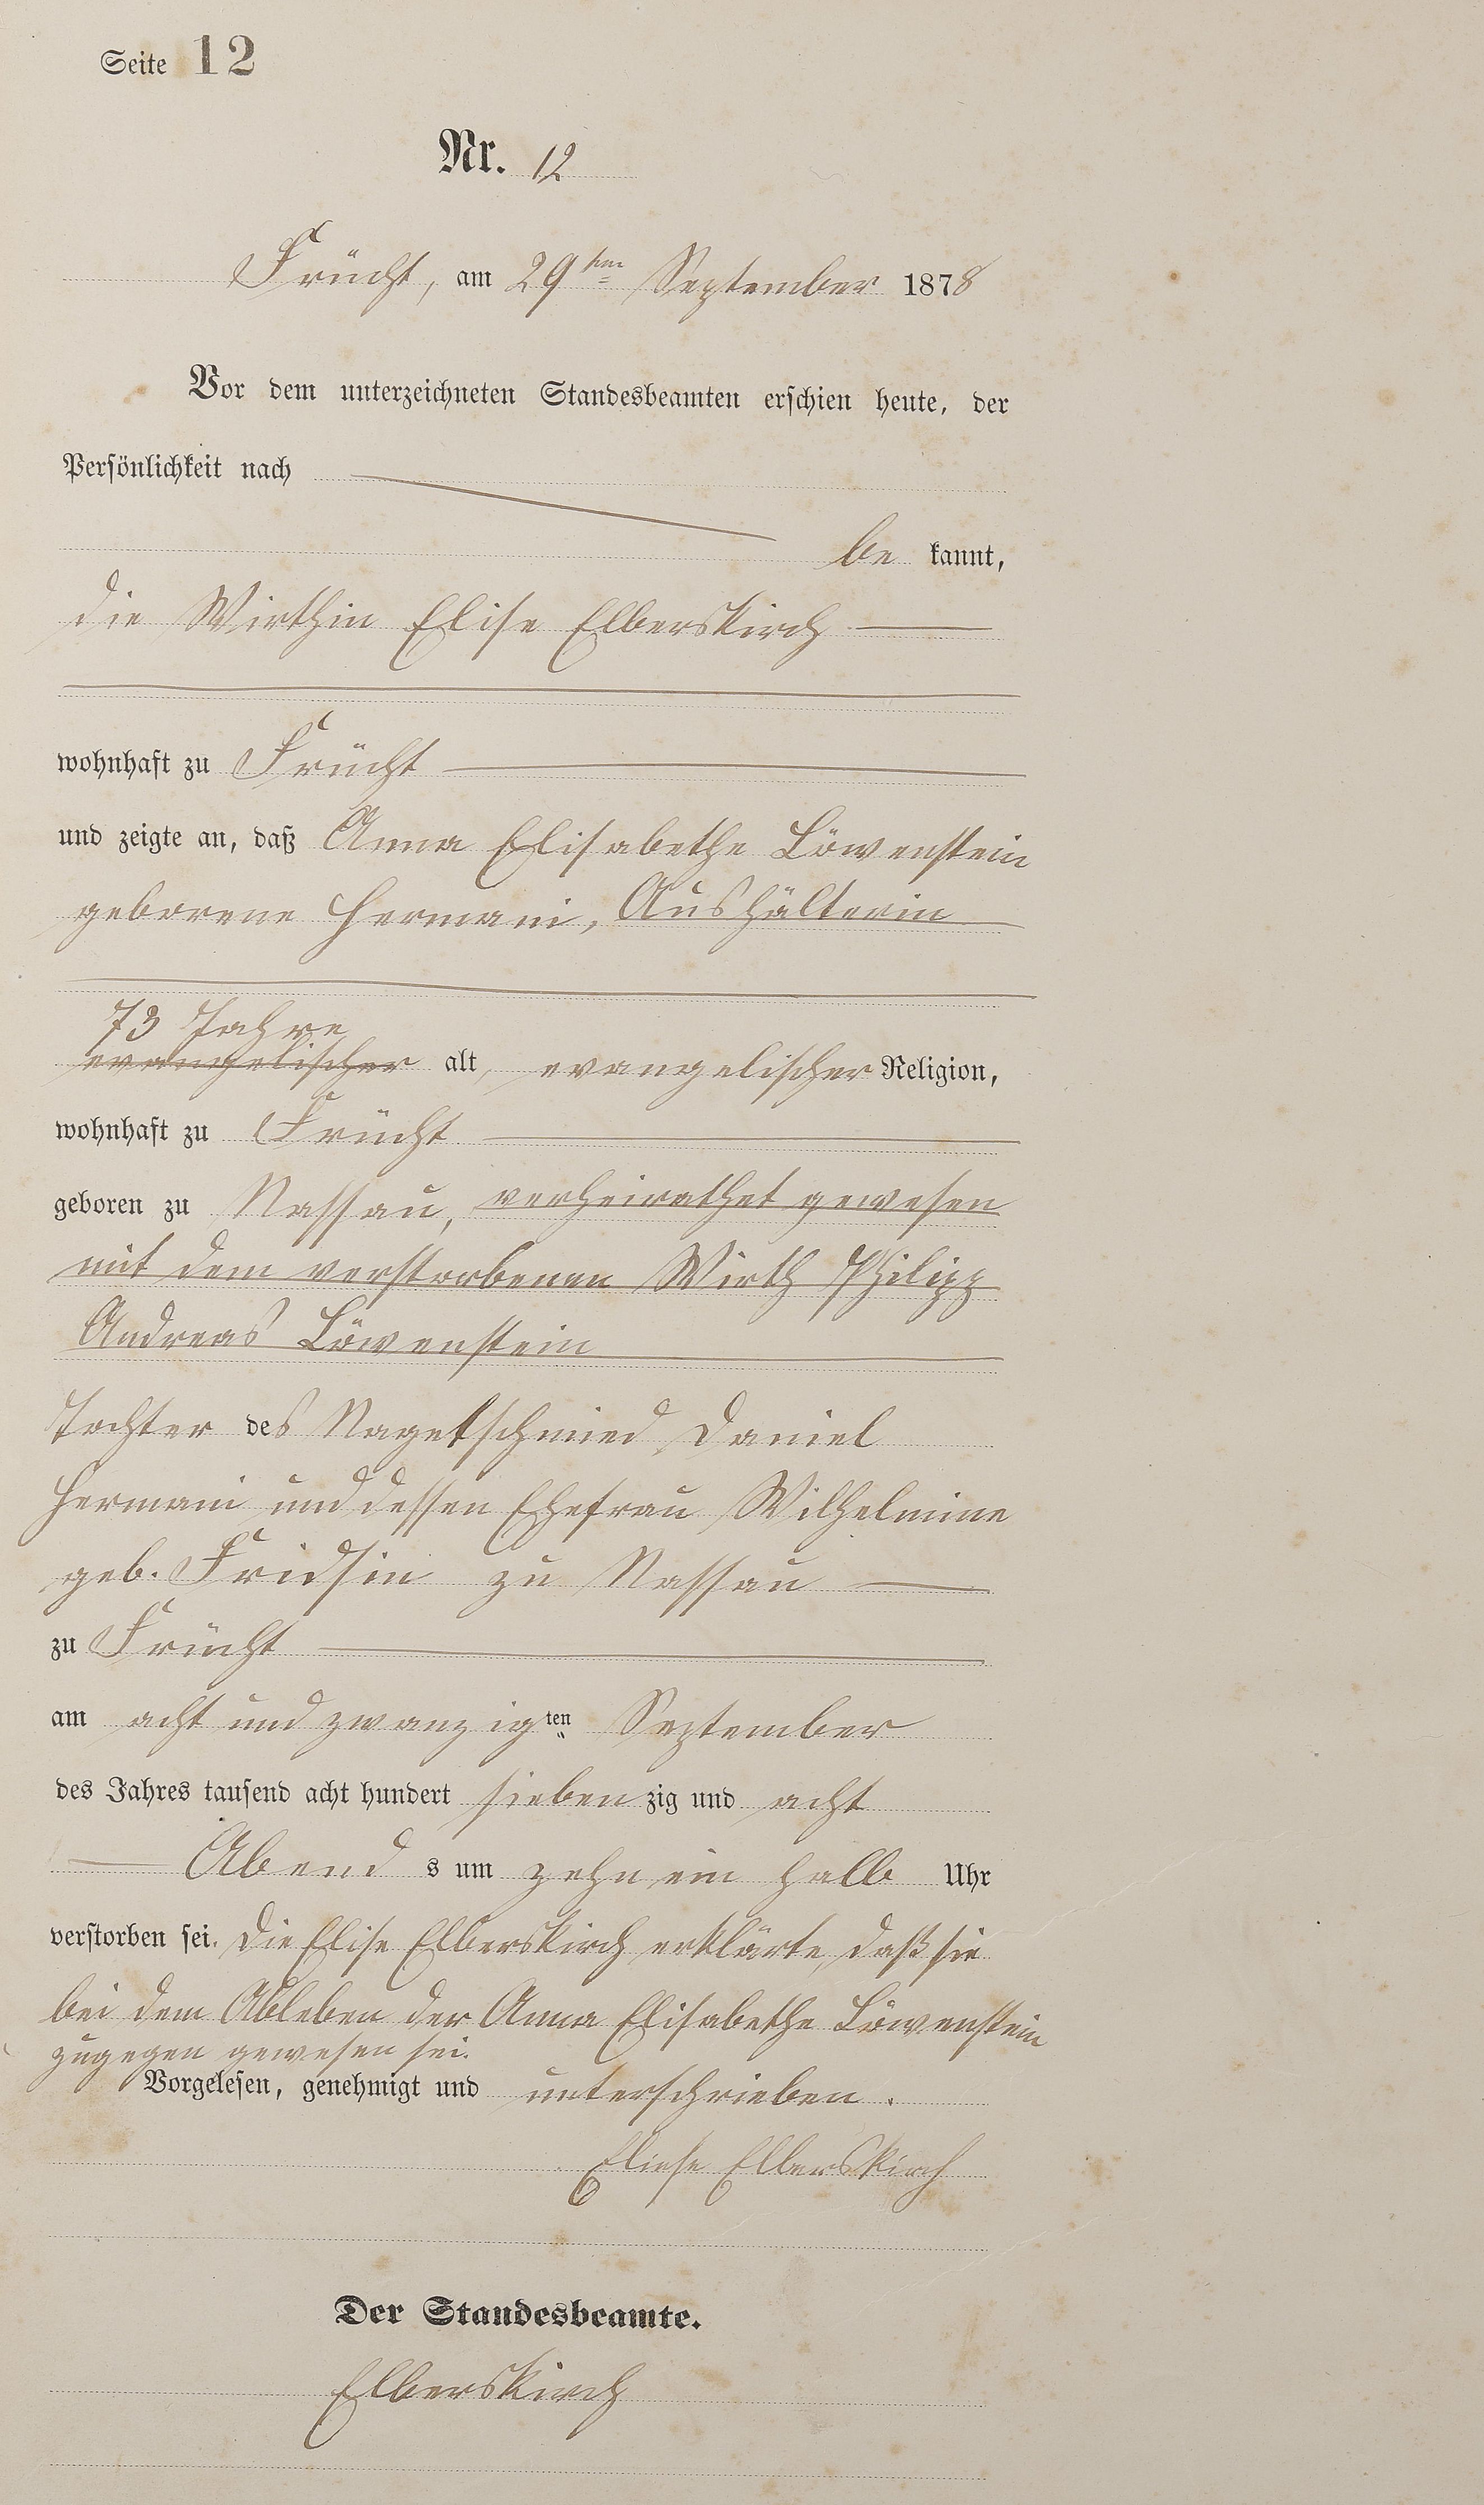 Seite 12
Nr. 12
Frücht, am 29ten September 1878
Vor dem unterzeichneten Standesbeamten erschien heute, der
Persönlichkeit nach
be kannt,
die Wirthin Elise Elberskirch
wohnhaft zu Frücht
und zeigte an, daß Anna Elisabethe Löwenstein
geborene Hermani, Aushälterin
73 Jahre
evangelischer alt, evangelischer Religion,
wohnhaft zu Frücht
geboren zu Nassau, verheirathet gewesen
mit dem verstorbenen Wirth Philipp
Andreas Löwenstein
Tochter des Nagelschmied Daniel
Hermani und dessen Ehefrau Wilhelmine
geb. zu Nassau
zu Frücht
am acht und zwanzigten September
des Jahres tausend acht hundert siebenzig und acht
Abend s um zehn ein halb Uhr
verstorben sei. Die Elise Elberskirch erklärte, daß sie
bei dem Ableben der Anna Elisabethe Löwenstein
zugegen gewesen sei.
Vorgelesen, genehmigt und unterschrieben.
Eliese Elberskirch
Der Standesbeamte.
Elberskirch